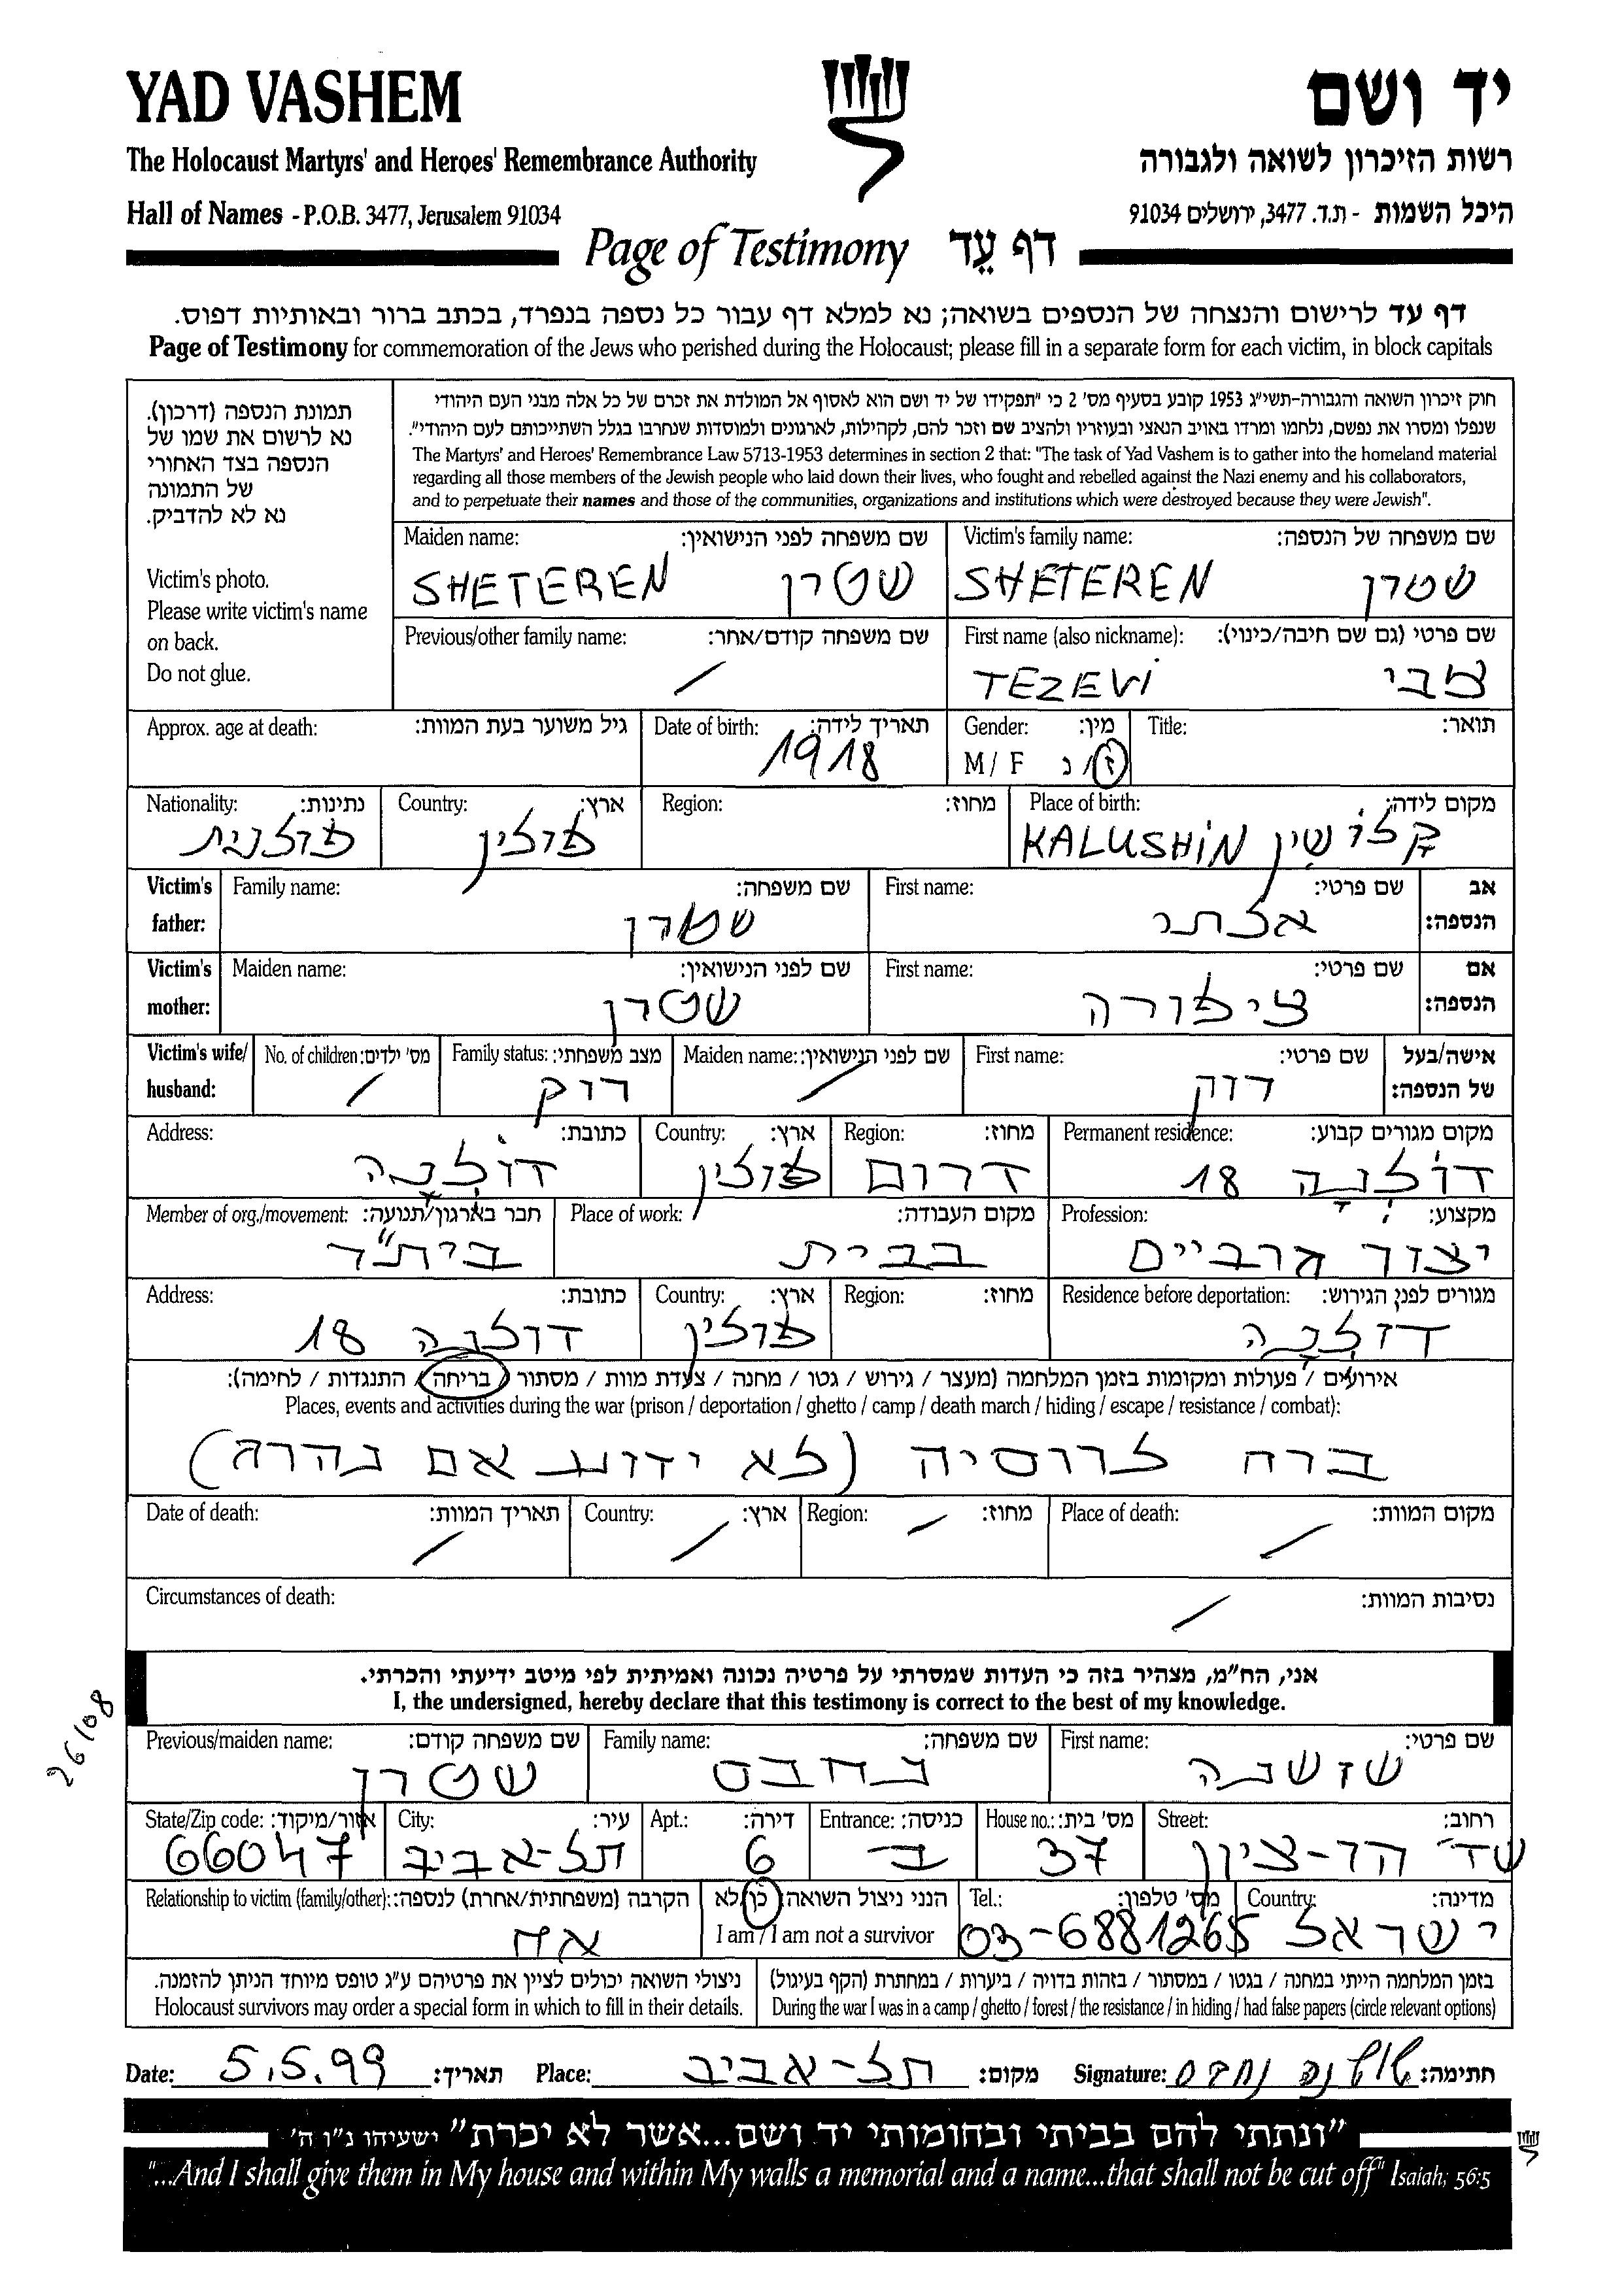 YAD VASHEM יד ושם
The Holocaust Martyrs' and Heroes' Remembrance Authority רשות הזיכרון לשואה ולגבורה
Hall of Names - P.O.B. 3477, Jerusalem 91034 היכל השמות - ת.ד. 3477, ירושלים 91034
Page of Testimony דף עֵד
דף עד לרישום והנצחה של הנספים בשואה; נא למלא דף עבור כל נספה בנפרד, בכתב ברור ובאותיות דפוס.
Page of Testimony for commemoration of the Jews who perished during the Holocaust; please fill in a separate form for each victim, in block capitals
תמונת הנספה (דרכון).
נא לרשום את שמו של
הנספה בצד האחורי
של התמונה
נא לא להדביק.
Victim's photo.
Please write victim's name
on back.
Do not glue.
חוק זיכרון השואה והגבורה-תשי"ג 1953 קובע בסעיף מס' 2 כי "תפקידו של יד ושם הוא לאסוף אל המולדת את זכרם של כל אלה מבני העם היהודי
שנפלו ומסרו את נפשם, נלחמו ומרדו באויב הנאצי ובעוזריו ולהציב שם וזכר להם, לקהילות, לארגונים ולמוסדות שנחרבו בגלל השתייכותם לעם היהודי".
The Martyrs' and Heroes' Remembrance Law 5713-1953 determines in section 2 that: "The task of Yad Vashem is to gather into the homeland material
regarding all those members of the Jewish people who laid down their lives, who fought and rebelled against the Nazi enemy and his collaborators,
and to perpetuate their names and those of the communities, organizations and institutions which were destroyed because they were Jewish".
Maiden name: שם משפחה לפני הנישואין: Victim's family name: שם משפחה של הנספה:
SHETEREN שטרן SHETEREN שטרן
Previous/other family name: שם משפחה קודם/אחר: First name (also nickname): שם פרטי (גם שם חיבה/כינוי):
/ TEZEVI צבי
Approx. age at death: גיל משוער בעת המוות: Date of birth: תאריך לידה: Gender: מין: Title: תואר:
1918 M / F ז/נ
Nationality: נתינות: Country: ארץ: Region: מחוז: Place of birth: מקום לידה:
פולנית פולין KALUSHIN קלושין
Victim's father: Family name: שם משפחה: First name: שם פרטי: אב הנספה:
שטרן אלתר
Victim's mother: Maiden name: שם לפני הנישואין: First name: שם פרטי: אם הנספה:
שטרן ציפורה
Victim's wife/ husband: No. of children: מס' ילדים: Family status: מצב משפחתי: Maiden name: שם לפני הנישואין: First name: שם פרטי: אישה/בעל של הנספה:
/ רוק / רוק
Address: כתובת: Country: ארץ: Region: מחוז: Permanent residence: מקום מגורים קבוע:
דולנה פולין דרום דולנה 18
Member of org./movement: חבר בארגון/תנועה: Place of work: מקום העבודה: Profession: מקצוע:
בית"ר בבית יצור גרביים
Address: כתובת: Country: ארץ: Region: מחוז: Residence before deportation: מגורים לפני הגירוש:
דולנה 18 פולין דולנה
אירועים / פעולות ומקומות בזמן המלחמה (מעצר / גירוש / גטו / מחנה / צעדת מוות / מסתור / בריחה / התנגדות / לחימה):
Places, events and activities during the war (prison / deportation / ghetto / camp / death march / hiding / escape / resistance / combat):
ברח לרוסיה (לא ידוע אם נהרג)
Date of death: תאריך המוות: Country: ארץ: Region: מחוז: Place of death: מקום המוות:
/ / / /
Circumstances of death: נסיבות המוות:
/
אני, הח"מ, מצהיר בזה כי העדות שמסרתי על פרטיה נכונה ואמיתית לפי מיטב ידיעתי והכרתי.
I, the undersigned, hereby declare that this testimony is correct to the best of my knowledge.
26/08
Previous/maiden name: שם משפחה קודם: Family name: שם משפחה: First name: שם פרטי:
שטרן נחבס שושנה
State/Zip code: אזור/מיקוד: City: עיר: Apt.: דירה: Entrance: כניסה: House no.: מס' בית: Street: רחוב:
66047 תל-אביב 6 ב 37 שד' הר-ציון
Relationship to victim (family/other): הקרבה (משפחתית/אחרת) לנספה: הנני ניצול השואה: כן/לא Tel.: מס' טלפון: Country: מדינה:
אח I am / I am not a survivor 03-6881265 ישראל
ניצולי השואה יכולים לציין את פרטיהם ע"ג טופס מיוחד הניתן להזמנה. בזמן המלחמה הייתי במחנה / בגטו / במסתור / בזהות בדויה / ביערות / במחתרת (הקף בעיגול)
Holocaust survivors may order a special form in which to fill in their details. During the war I was in a camp / ghetto / forest / the resistance / in hiding / had false papers (circle relevant options)
Date: 5.5.99 תאריך: Place: תל-אביב מקום: Signature: שושנה נחבס חתימה:
"ונתתי להם בביתי ובחומותי יד ושם...אשר לא יכרת" ישעיהו נ"ו ה'
"...And I shall give them in My house and within My walls a memorial and a name...that shall not be cut off" Isaiah, 56:5